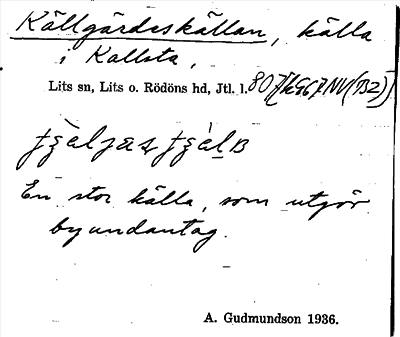 Källgärdeskällan, källa
i Kallsta,
Lits sn, Lits o. Rödöns hd, Jtl. l.
En stor källa, som utgör
byundantag.
A. Gudmundson 1936.